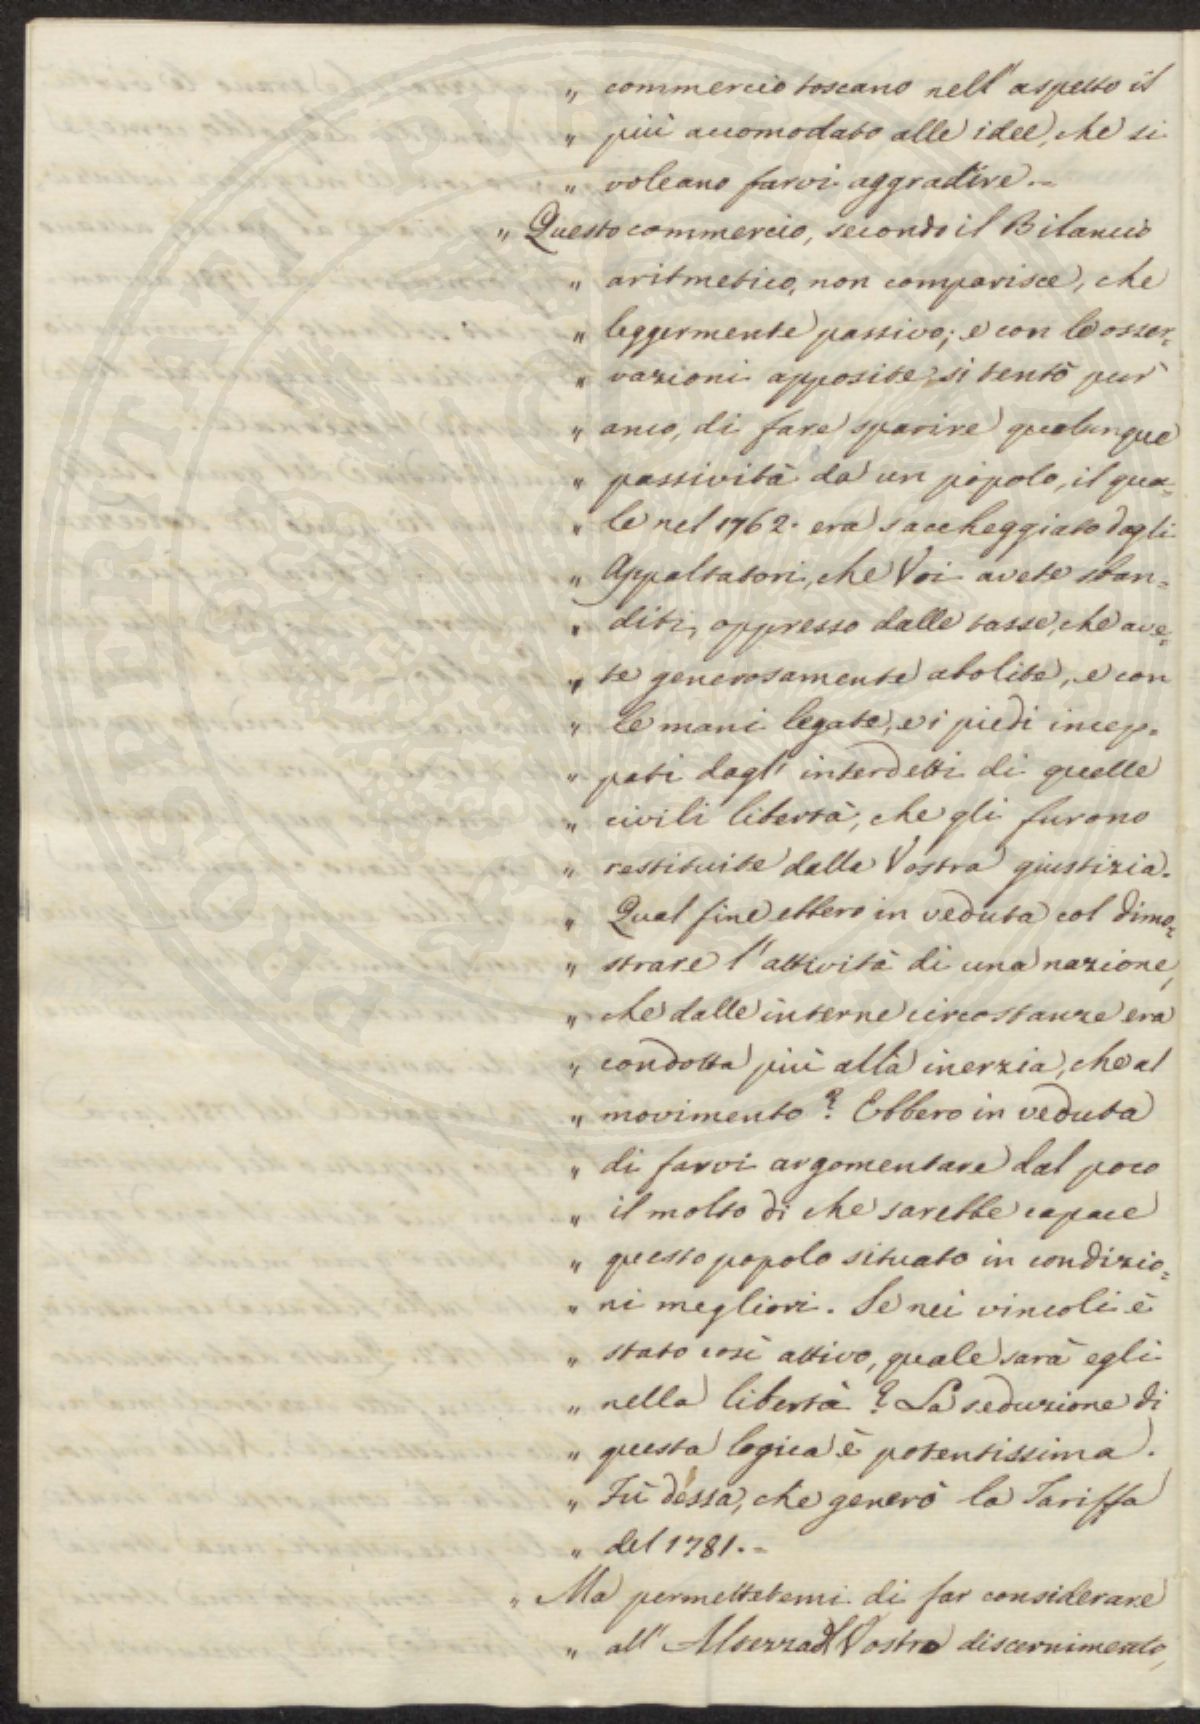 „ commercio toscano nell' aspetto il
„ più accomodato alle idee, che si
„ voleano farvi aggradire.=
„ Questo commercio, secondo il Bilancio
„ aritmetico, non comparisce, che
„ leggermente passivo; e con le osser=
„ vazioni apposite, si tentò pur'
„ anco, di fare sparire qualunque
„ passività da un pòpolo, il qua=
„ le nel 1762. era saccheggiato dagli
„ Appaltatori, che Voi avete sban=
„ diti, oppresso dalle tasse, che ave=
„ te generosamente abolite, e con
„ le mani legate, e i piedi incep=
„ pati dagl' interdetti di quelle
„ civili libertà, che gli furono
„ restituite dalla Vostra giustizia.
„ Qual fine ebbero in veduta col dimo=
„ strare l'attività di una nazione,
„ che dalle interne circostanze era
„ condotta più alla inerzia, che al
„ movimento? Ebbero in veduta
„ di farvi argomentare dal poco
„ il molto di che sarebbe capace
„ questo popolo situato in condizio=
„ ni megliori. Se nei vincoli è
„ stato così attivo, quale sarà egli
„ nella libertà? La seduzione di
„ questa logica è potentissima.
„ Fù dessa, che generò la Tariffa
„ del 1781.=
„ Ma permettetemi di far considerare
„ all' Altezza Vostra discernimento,
PROSPERITATI PUBLICAE